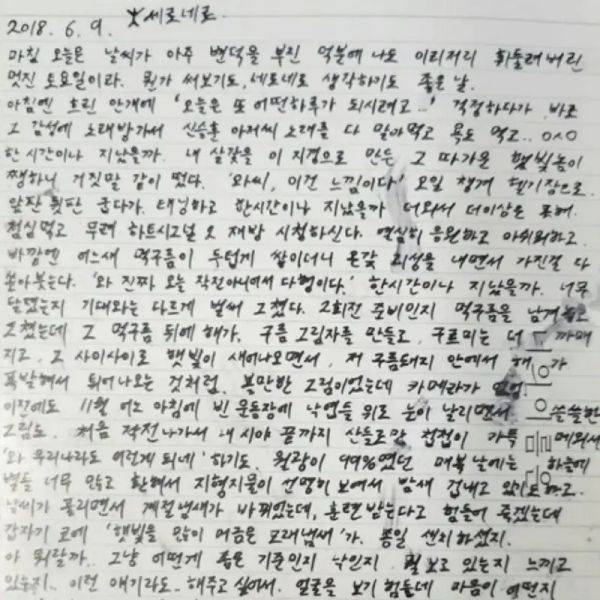 2018. 6. 9. 세로네로.
마침 오늘은 날씨가 아주 변덕을 부린 덕분에 나도 이리저리 휘둘려버린
멋진 토요일이라. 뭔가 써보기도, 세로네로 생각하기도 좋은 날.
아침엔 흐린 안개에 '오늘은 또 어떤하루가 되시려고..' 걱정하다가 바로
그 감성에 노래방가서 신승훈 아저씨 노래를 다 말아먹고 욕도 먹고.. ㅇㅅㅇ
한시간이나 지났을까. 내 살갗을 이 지경으로 만든 그 따가운 햇빛놈이
쨍하니 거짓말 같이 떴다. '와씨, 이건 느낌이다' 오일 챙겨 헬기장으로.
앞판 뒷판 굽다가. 태닝하고 한시간이나 지났을까 더워서 더이상은 못해.
점심먹고 무려 하트시그널 2 재방 시청하신다. 열심히 응원하고 아쉬워하고.
바깥엔 어느새 먹구름이 두텁게 쌓이더니 온갖 괴성을 내면서 가진걸 다
쏟아붓는다. '와 진짜 오늘 작전아니어서 다행이다.' 한시간이나 지났을까. 너무
달렸는지 기대와는 다르게 벌써 그쳤다. 2회전 준비인지 먹구름을 남겨
그쳤는데 그 먹구름 뒤에 해가, 구름 그림자를 만들고, 구르미는 더 까매
지고, 그 사이사이로 햇빛이 새어나오면서, 저 구름돼지 안에서 해가
폭발해서 튀어나오는 것처럼, 볼만한 그림이었는데 카메라가 없었
이전에도 11월 어느 아침에 빈 운동장에 낙엽들 위로 눈이 날리면서 쓸쓸한
그림도, 처음 작전나가서 내 시야 끝까지 산들로만 첩첩이 가득 메워서
'와 우리나라도 이렇게 되네' 하기도, 월광이 99%였던 매복날에는 하늘에
별들 너무 많고 환해서 지형지물이 선명히 보여서 밤새 겁내고 있기도하고.
날씨가 풀리면서 계절냄새가 바뀌었는데, 훈련받는다고 힘들어 죽겠는데
갑자기 코에 '햇빛을 많이 머금은 모래냄새'가. 종일 센치하셨지.
아 뭐랄까.. 그냥 어떻게 좋은 기준인지 낙인지. 뭘 보고 있는지 느끼고
있는지.. 이런 얘기라도.. 해주고 싶어서. 얼굴을 보기 힘든데 마음이 어떤지